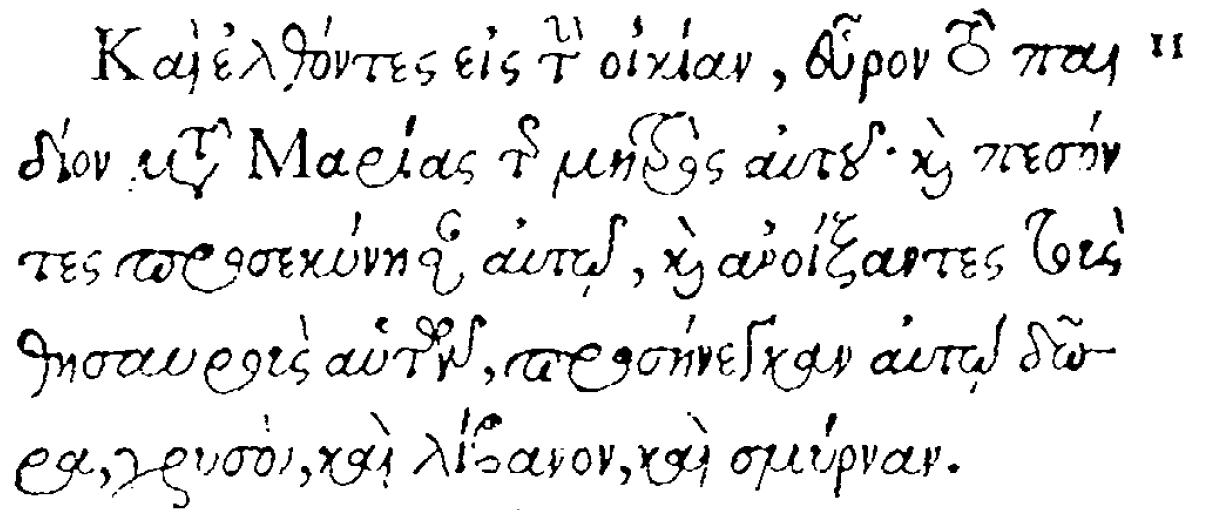 Καὶ ἐλθόντες εἰς τὴν οἰκίαν, εὗρον τὸ παι 11
δίον μετὰ Μαρίας τῆς μητρὸς αὐτοῦ· καὶ πεσόν
τες προσεκύνησαν αὐτῷ, καὶ ἀνοίξαντες τοὺς
θησαυροὺς αὑτῶν, προσήνεγκαν αὐτῷ δῶ
ρα, χρυσὸν, καὶ λίβανον, καὶ σμύρναν.